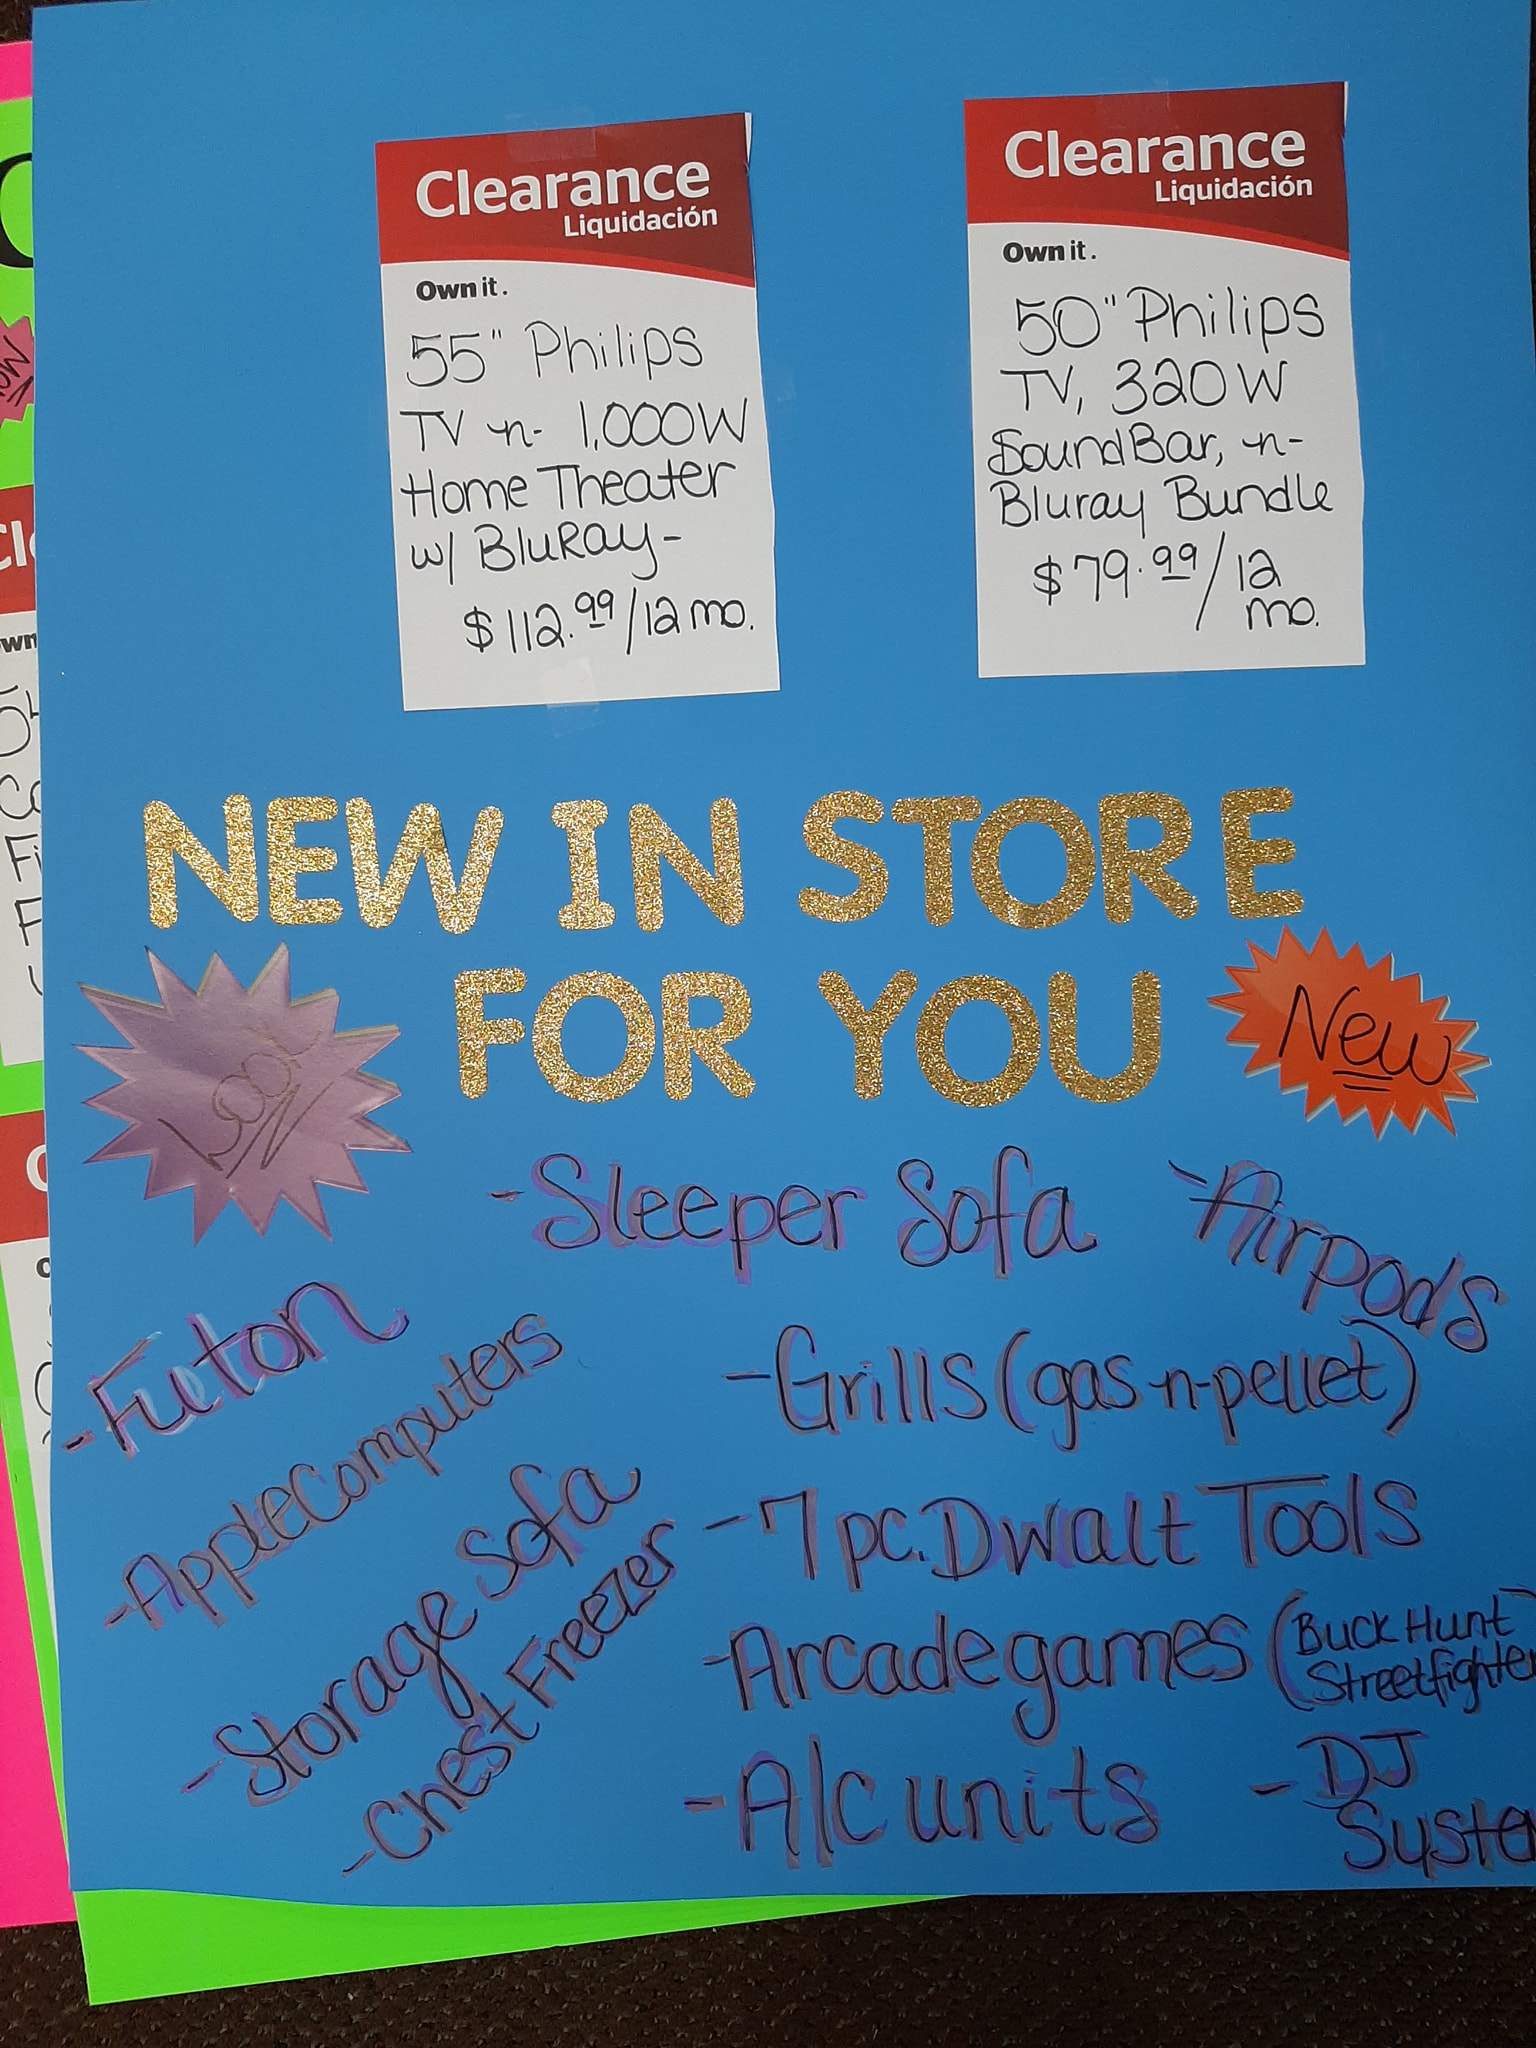 Clearance
Liquidación
Own it.
55" Philips
TV -n- 1,000W
Home Theater
w/ BluRay-
$112.99/12 mo.
Clearance
Liquidación
Own it.
50" Philips
TV, 320W
SoundBar, -n-
Bluray Bundle
$79.99/12
mo.
NEW IN STORE
FOR YOU
Look
New
-Sleeper Sofa
-Airpods
-Futon
-Grills (gas-n-pellet)
-Apple Computers
-7 pc. Dwalt Tools
-Storage Sofa
-Arcade games (Buck Hunt
Streetfighter
-Chest Freezer
-A/C units
-DJ
System